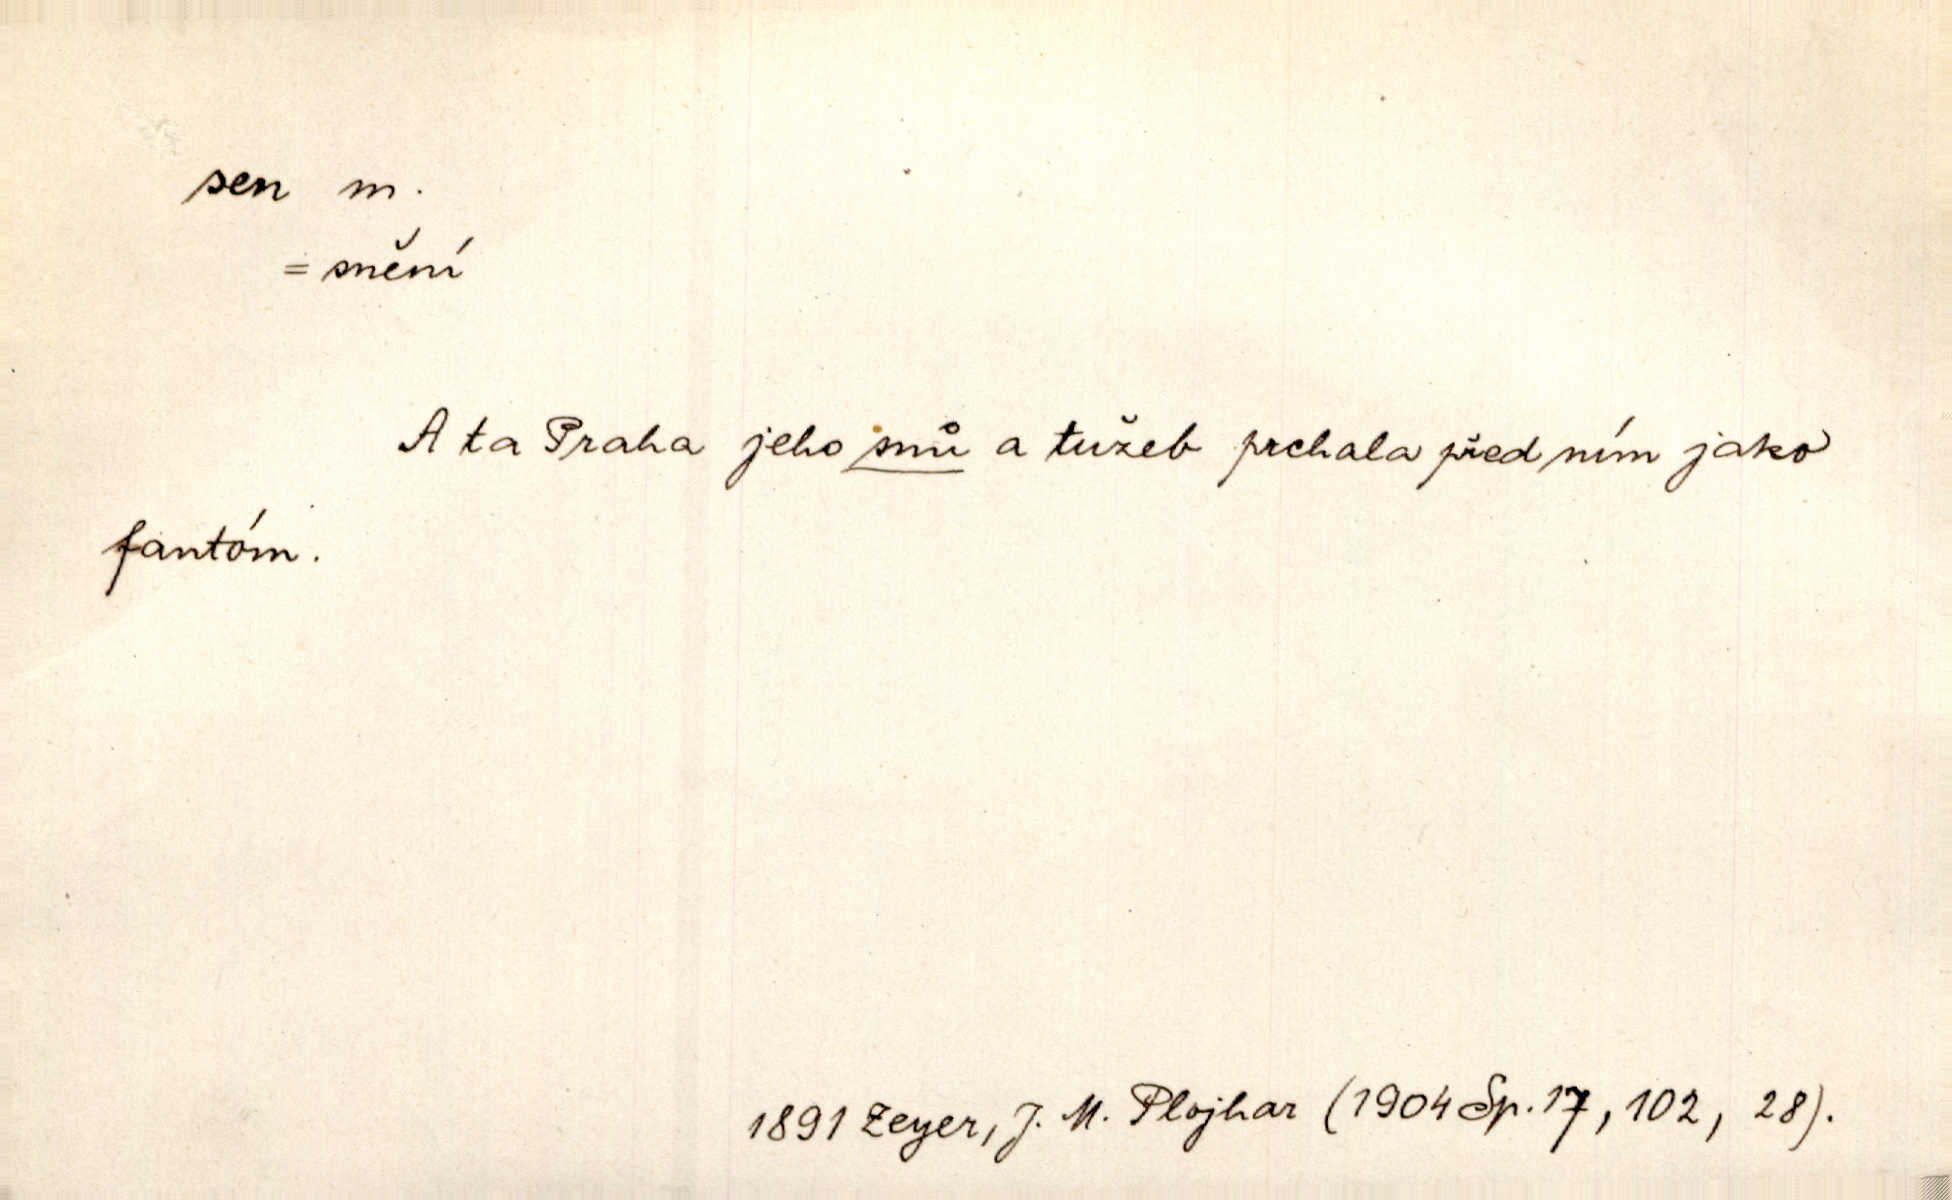 sen m.
= snění
A ta Praha jeho snů a tužeb prchala před ním jako
fantóm.
1891 Zeyer, J. M. Plojhar (1904 Sp. 17, 102, 28).